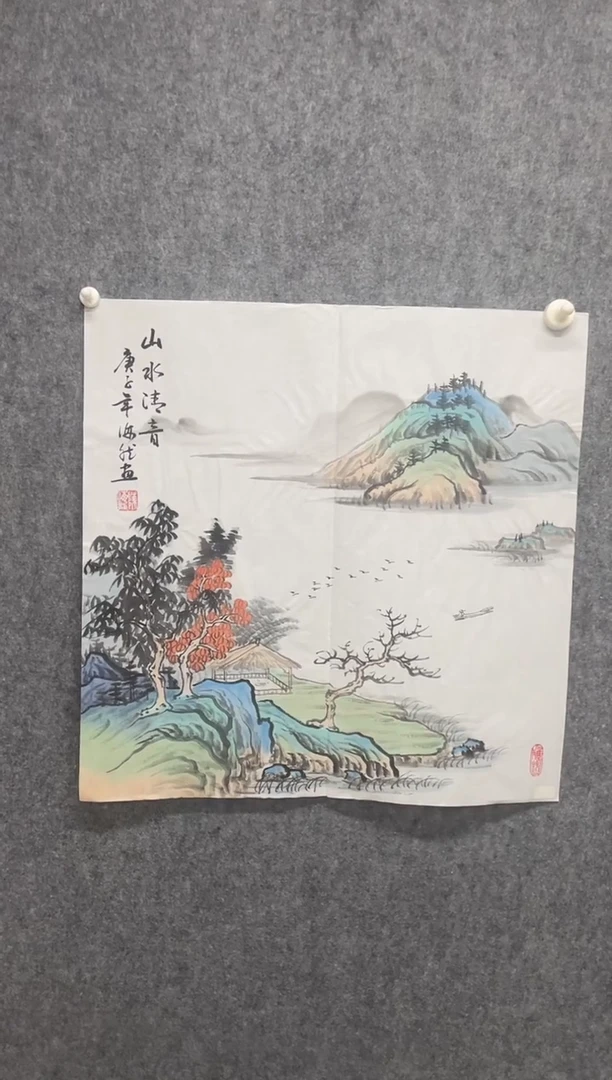 山水清音
庚子年海然画